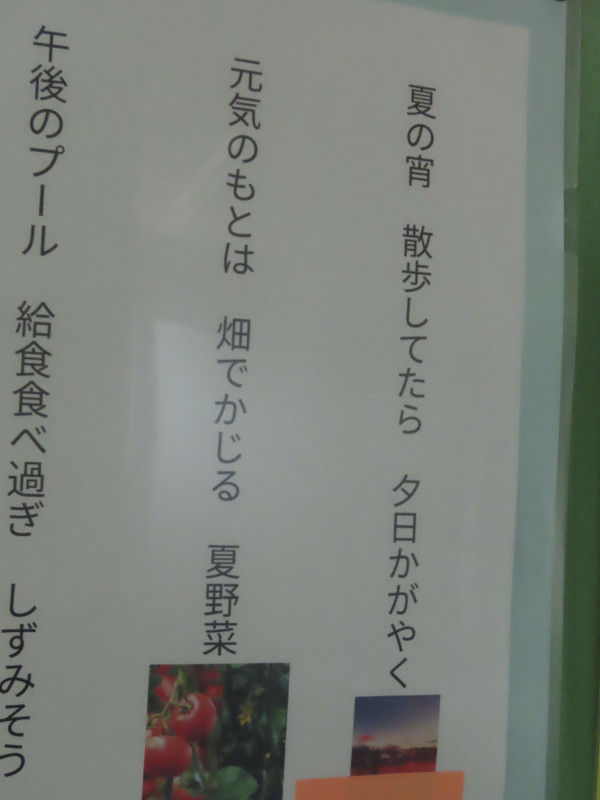 夏の宵　散歩してたら　夕日かがやく
元気のもとは　畑でかじる　夏野菜
午後のプール　給食食べ過ぎ　しずみそう